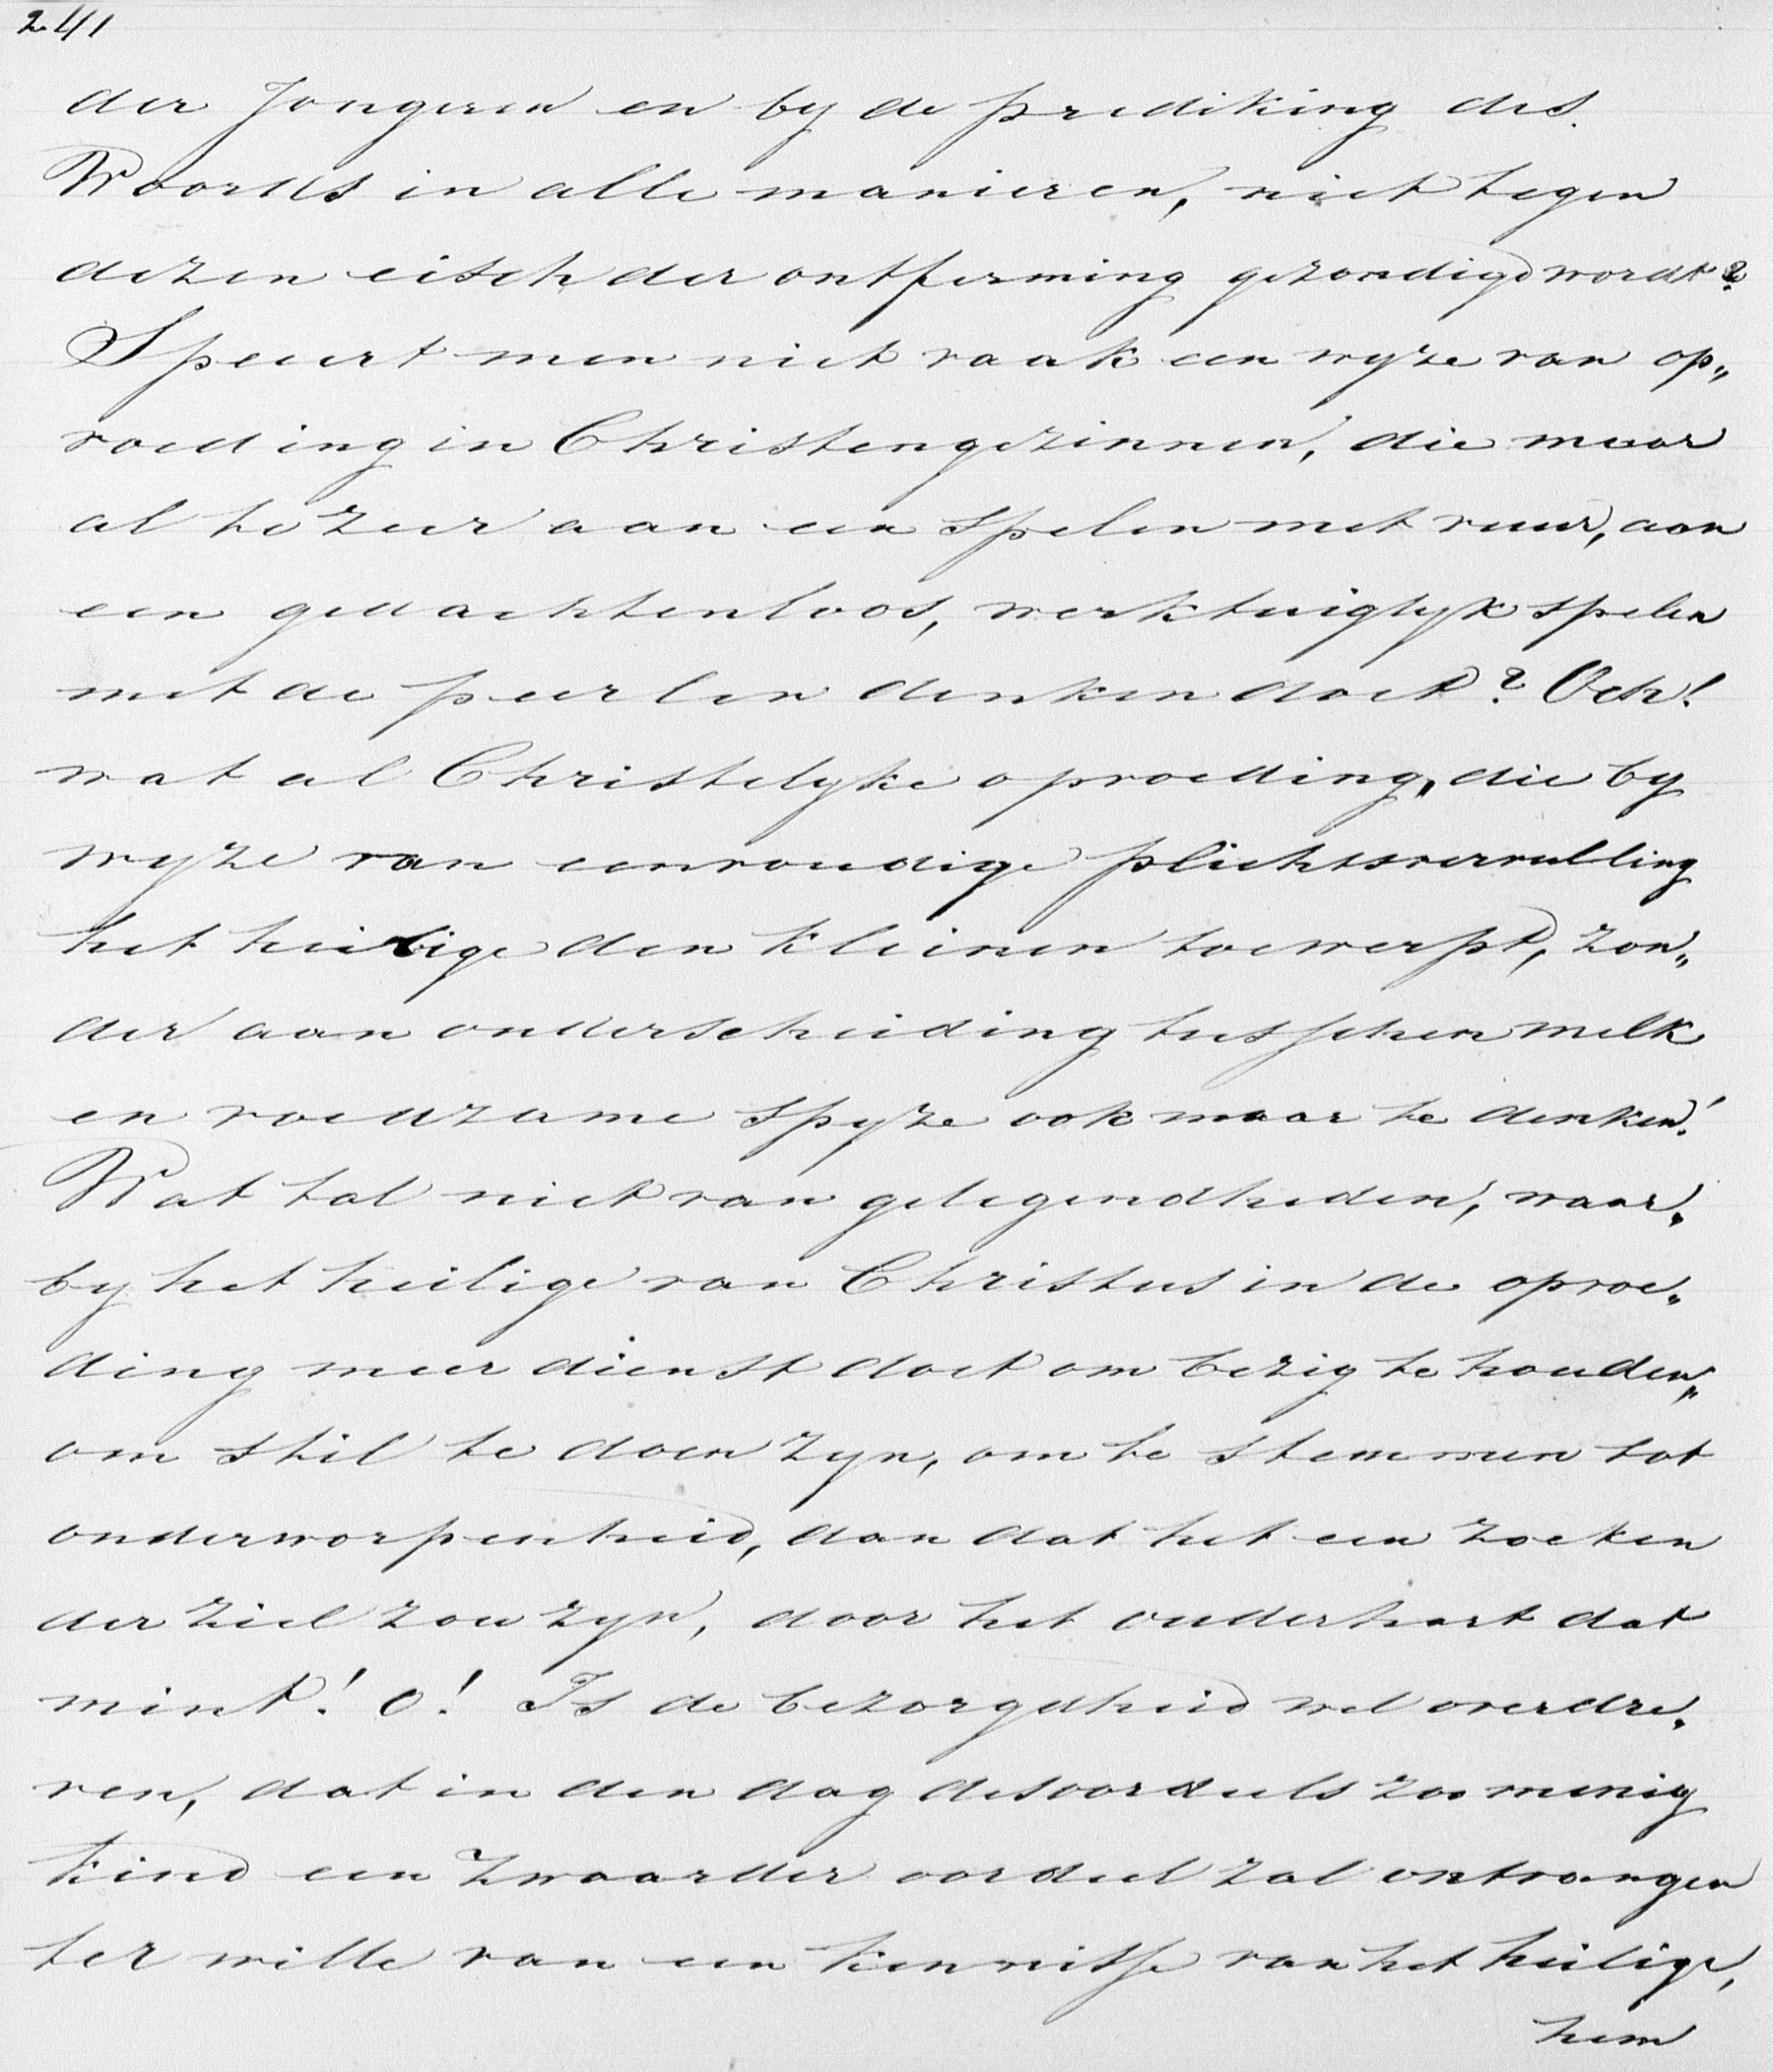 241
der Jongeren en by de prediking des
Woords in alle manieren, niet tegen
dezen eisch der ontferming gezondigd wordt?
Speurt men niet vaak een wyze van op„
voeding in Christengezinnen, die maar
al te zeer aan een spelen met vuur, aan
een gedachtenloos, werktuiglyk spelen
met de peerlen denken doet? Och!
wat al Christelyke opvoeding, die by
wyze van eenvoudige plichtsvervulling
het heilige den kleinen toewerpt, zon„
der aan onderscheiding tusschen melk
en voedzame spyze ook maar te denken!
Wat tal niet van gelegendheden, waar„
by het heilige van Christus in de opvoe„
ding meer dienst doet om bezig te houden,
om stil te doen zyn, om te stemmen tot
onderworpenheid, dan dat het een zoeken
der ziel zou zyn, door het ouderhart dat
mint! O! Is de bezorgdheid wel overdre„
ven, dat in den dag des oordeels zoo menig
kind een zwaarder oordeel zal ontvangen
ter wille van een kennisse van het heilige,
hem